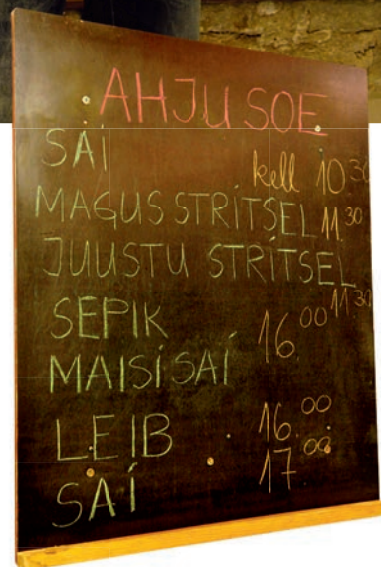 AHJU SOE
SAI
kell 10.30
MAGUS STRITSEL 11.30
JUUSTU STRITSEL
11.30
SEPIK 16.00
MAISI SAI
LEIB 16.00
SAI 17.00